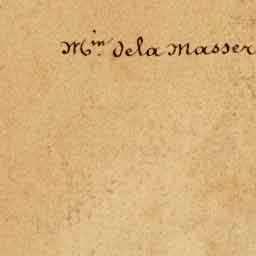 Min. dela Masser